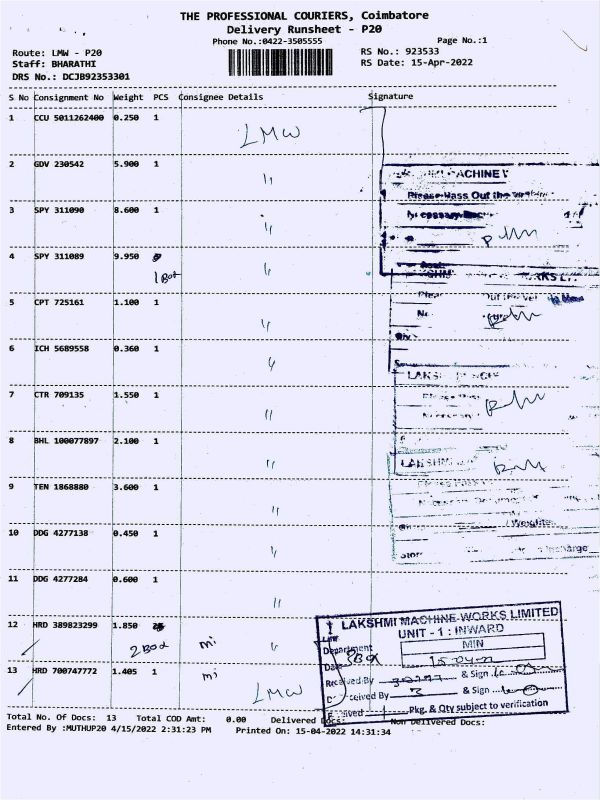 THE PROFESSIONAL COURIERS, Coimbatore
Delivery Runsheet - P20
Phone No.:0422-3505555 Page No.:1
Route: LMW - P20 RS No.: 923533
Staff: BHARATHI RS Date: 15-Apr-2022
DRS No.: DCJB92353301
S No Consignment No Weight PCS Consignee Details Signature
1 CCU 5011262400 0.250 1 LMW
2 GDV 230542 5.900 1 〃
3 SPY 311090 8.600 1 〃
4 SPY 311089 9.950 〃
1 Box
5 CPT 725161 1.100 1 〃
6 ICH 5689558 0.360 1 〃
7 CTR 709135 1.550 1 〃
8 BHL 100077897 2.100 1 〃
9 TEN 1868880 3.600 1 〃
10 DDG 4277138 0.450 1 〃
11 DDG 4277284 0.600 1 〃
12 HRD 389823299 1.850 〃
2 Box mi
13 HRD 700747772 1.405 1 mi LMW
MACHINE
Please Pass Out the
LAKSHMI MACHINE WORKS LIMITED
UNIT - 1 : INWARD
MIN
Department
Date
Received By & Sign
Received By & Sign
Pkg. & Qty subject to verification
Total No. Of Docs: 13 Total COD Amt: 0.00 Delivered Docs: Non Delivered Docs:
Entered By :MUTHUP20 4/15/2022 2:31:23 PM Printed On: 15-04-2022 14:31:34